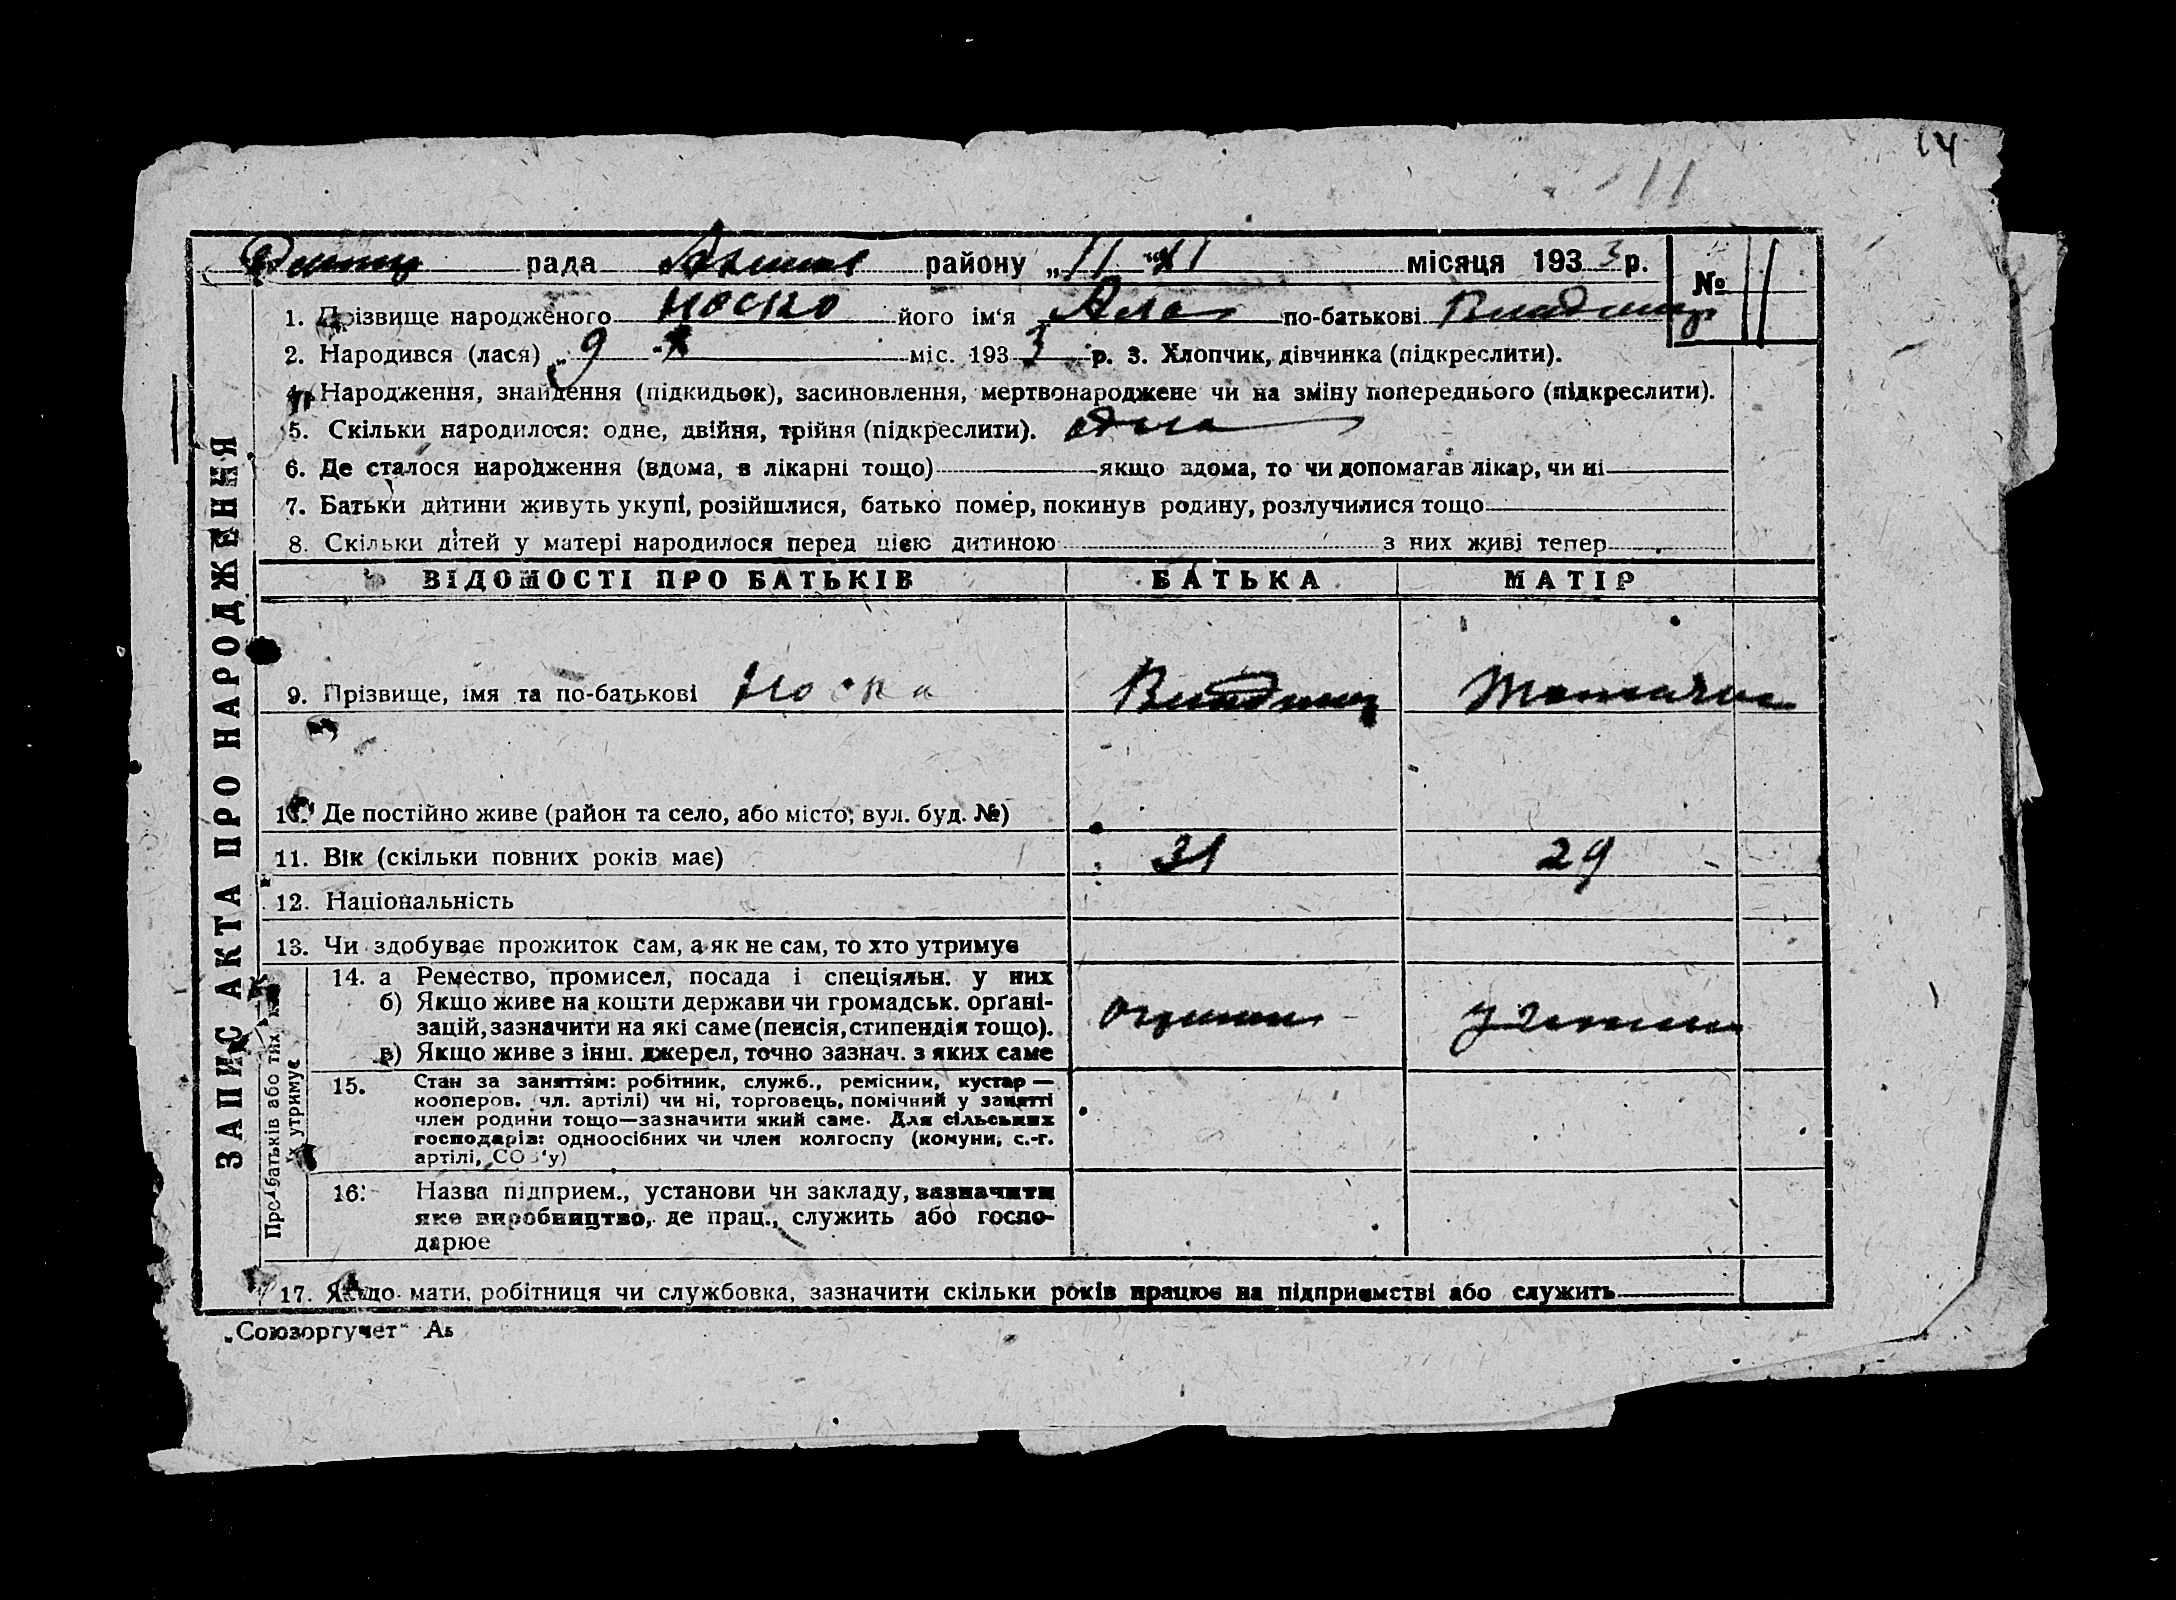 14
11
рада району „11“ XI місяця 1933 р. № 11
1. Прізвище народженого Носко його ім‘я Ала по-батькові
2. Народився (лася) „9“ X міс. 1933 р. 3. Хлопчик, дівчинка (підкреслити).
4. Народження, знайдення (підкидьок), засиновлення, мертвонароджене чи на зміну попереднього (підкреслити).
5. Скільки народилося: одне, двійня, трійня (підкреслити). одна
6. Де сталося народження (вдома, в лікарні тощо) якщо вдома, то чи допомагав лікар, чи ні
7. Батьки дитини живуть укупі, розійшлися, батько помер, покинув родину, розлучилися тощо
8. Скільки дітей у матері народилося перед цією дитиною з них живі тепер
ЗАПИС АКТА ПРО НАРОДЖЕННЯ
ВІДОМОСТІ ПРО БАТЬКІВ БАТЬКА МАТІР
9. Прізвище, імя та по-батькові Носка
10. Де постійно живе (район та село, або місто; вул. буд. №)
11. Вік (скільки повних років має) 31 29
12. Національність
13. Чи здобуває прожиток сам, а як не сам, то хто утримує
Про батьків або тих, хто
їх утримує
14. а Ремество, промисел, посада і спеціяльн. у них
б) Якщо живе на кошти держави чи громадськ. орґані-
зацій, зазначити на які саме (пенсія, стипендія тощо).
в) Якщо живе з інш. джерел, точно зазнач. з яких саме
15. Стан за заняттям: робітник, служб., ремісник, кустар —
кооперов. (чл. артілі) чи ні, торговець, помічний у занятті
член родини тощо—зазначити який саме. Для сільських
господарів: одноосібних чи член колгоспу (комуни, с.-г.
артілі, СОЗ‘у)
16. Назва підприєм., установи чи закладу, зазначити
яке виробництво, де прац., служить або госпо-
дарює
17. Якщо мати, робітниця чи службовка, зазначити скільки років працює на підприємстві або служить
„Союзоргучет“